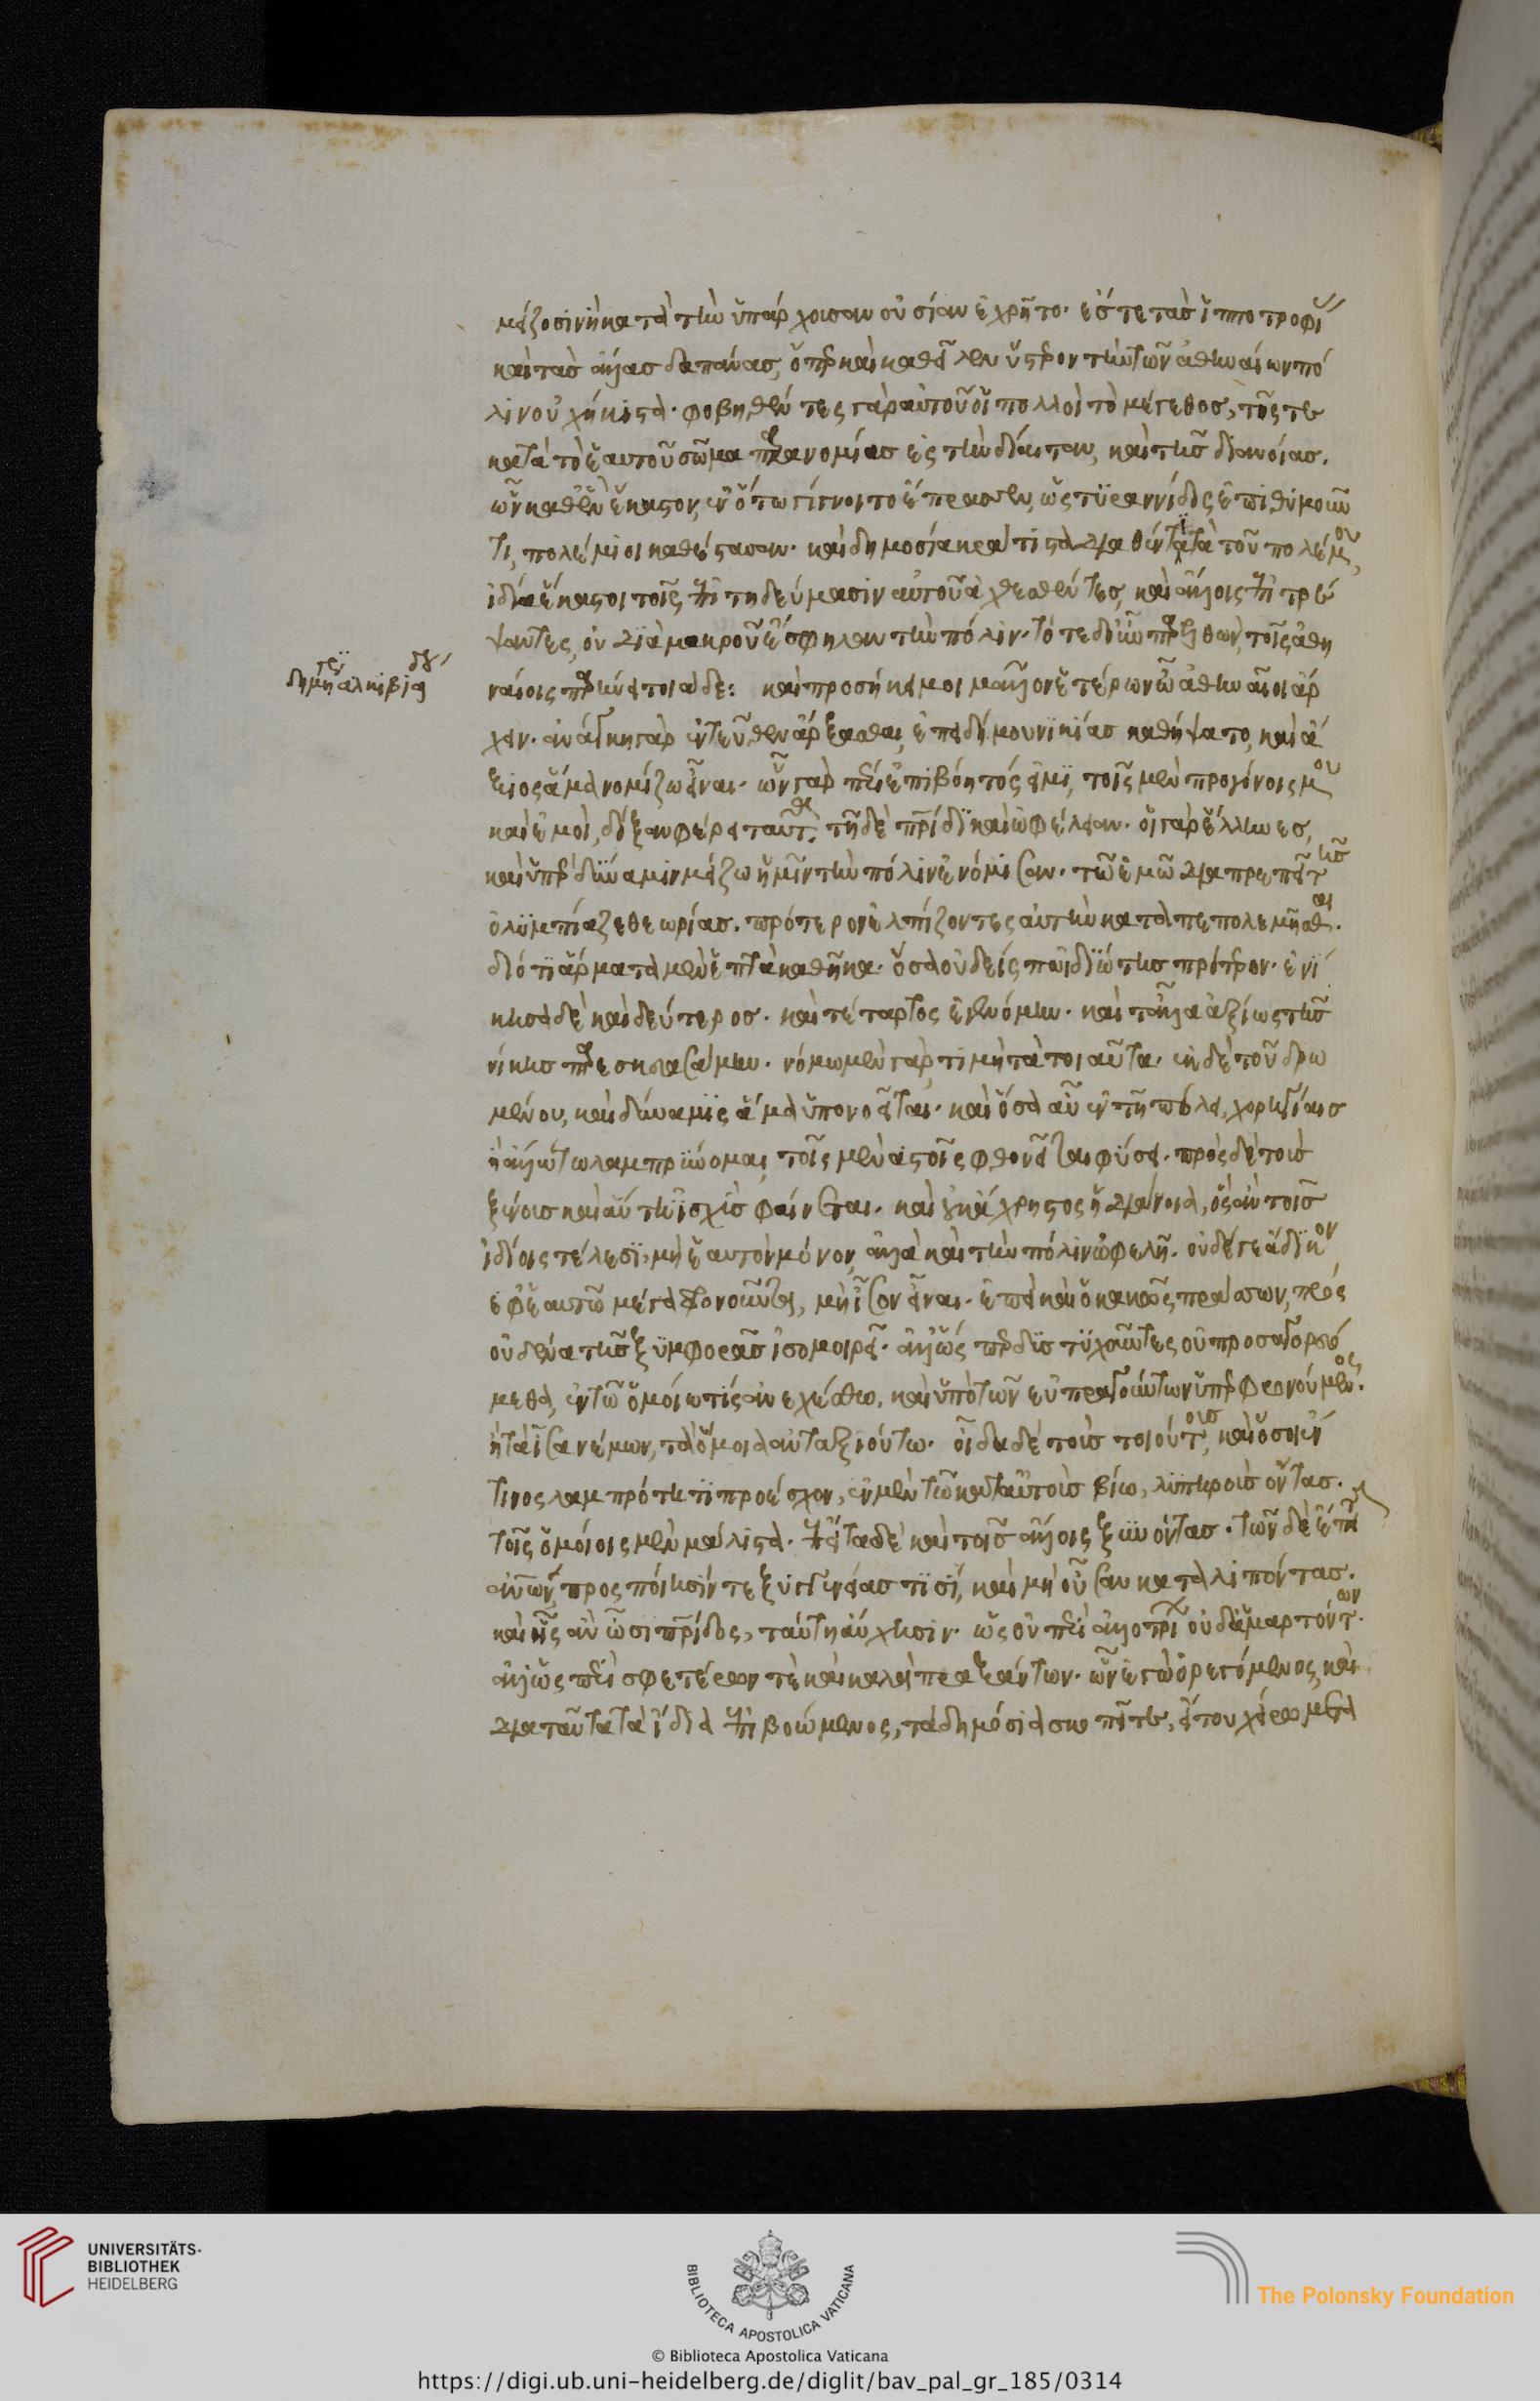 μείζοσιν ἢ κατὰ τὴν ὑπάρχουσαν οὐσίαν ἐχρῆτο· ἔς τε τὰς ἱπποτροφί
καὶ τὰς ἄλλας δαπάνας, ὅπερ καὶ καθεῖλεν ὕστερον τὴν τῶν ἀθηναίων πό
λιν οὐχ ἥκιστα· φοβηθέντες γὰρ αὐτοῦ οἱ πολλοὶ τὸ μέγεθος, τῆς τε
κατὰ τὸ ἑαυτοῦ σῶμα παρανομίας ἐς τὴν δίαιταν, καὶ τῆς διανοίας.
ὧν καθ' ἓν ἕκαστον, ἐν ὅτω γίγνοιτο ἔπρασσεν, ὡς τυραννίδος ἐπιθυμοῦν
τι, πολέμιοι καθέστασαν· καὶ δημοσία κράτιστα διαθέντι τὰ τοῦ πολέμου,
ἰδία ἕκαστοι τοῖς ἐπιτηδεύμασιν αὐτοῦ ἀχθεσθέντες, καὶ ἄλλοις ἐπιτρέ
ψαντες, οὐ διὰ μακροῦ ἔσφηλαν τὴν πόλιν· τότε δ' οὖν παρελθὼν, τοῖς ἀθη
δημη ἀλκιβιά
ναίοις παρήνει τοιάδε: καὶ προσήκει μοι μᾶλλον ἑτέρων ὦ ἀθηναῖοι ἄρ
χειν· ἀνάγκη γὰρ ἐντεῦθεν ἄρξασθαι, ἐπειδή μου νικίας καθήψατο, καὶ ἄ
ξιος ἅμα νομίζω εἶναι· ὧν γὰρ πέρι ἐπιβόητός εἰμι, τοῖς μὲν προγόνοις μου
καὶ ἐμοὶ, δόξαν φέρει ταῦτα. τῇ δὲ πατρίδι καὶ ὠφέλειαν· οἱ γὰρ ἕλληνες,
καὶ ὑπὲρ δύναμιν μείζω ἡμῶν τὴν πόλιν ἐνόμισαν· τῷ ἐμῷ διαπρεπεῖ τῆς
ὀλυμπίαζε θεωρίας. πρότερον ἐλπίζοντες αὐτὴν καταπεπολεμῆσθαι.
διότι ἅρματα μὲν ἑπτὰ καθῆκα· ὅσα οὐδείς πω ἰδιώτης πρότερον· ἐνί
κησα δὲ καὶ δεύτερος· καὶ τέταρτος ἐγενόμην· καὶ τἆλλα ἀξίως τῆς
νίκης παρεσκευασάμην· νόμω μὲν γὰρ, τιμὴ τὰ τοιαῦτα· ἐκ δὲ τοῦ δρω
μένου, καὶ δύναμις ἅμα ὑπονοεῖται· καὶ ὅσα αὖ ἐν τῇ πόλει, χορηγίαις
ἢ ἄλλω τω λαμπρύνομαι, τοῖς μὲν ἀστοῖς φθονεῖται φύσει· πρὸς δὲ τοὺς
ξένους καὶ αὕτη ἰσχὺς φαίνεται· καὶ οὐκ ἄχρηστος ἡ διάνοια, ὃς ἂν τοῖς
ἰδίοις τέλεσι, μὴ ἑαυτὸν μόνον, ἀλλὰ καὶ τὴν πόλιν ὠφελῇ. οὐδέ γε ἄδικον
ἐφ' ἑαυτῷ μέγα φρονοῦντα, μὴ ἴσον εἶναι· ἐπεὶ καὶ ὁ κακῶς πράσσων, πρὸς
οὐδένα τῆς ξυμφορᾶς ἰσομοιρεῖ· ἀλλ' ὥσπερ δυστυχοῦντες οὐ προσαγορευό
μεθα, ἐν τῷ ὁμοίω τίς ἀνεχέσθω, καὶ ὑπὸ τῶν εὐπραγούντων ὑπερφρονούμενος.
ἢ τὰ ἴσα νέμων, τὰ ὅμοια ἀνταξιούτω· οἶδα δὲ τοὺς τοιούτους, καὶ ὅσοι ἔν
τινος λαμπρότητι προέσχον, ἐν μὲν τῷ κατ' αὐτοὺς βίω, λυπηροὺς ὄντας.
τοῖς ὁμοίοις μὲν μάλιστα· ἔπειτα δὲ καὶ τοῖς ἄλλοις ξυνόντας. τῶν δὲ ἔπειτα
ἀνθρώπων, προσποίησίν τε ξυγγενείας τισὶ, καὶ μὴ οὖσαν καταλιπόντας.
καὶ ἧς ἂν ὦσι πατρίδος, ταύτῃ αὔχησιν· ὡς οὐ περὶ ἀλλοτρίων οὐδ' ἁμαρτόντων.
ἀλλ' ὡς περὶ σφετέρων τε καὶ καλὰ πραξάντων· ὧν ἐγὼ ὀρεγόμενος, καὶ
διὰ ταῦτα τὰ ἴδια ἐπιβοώμενος, τὰ δημόσια σκοπεῖτε, εἴ του χεῖρον μετα
UNIVERSITÄTS-
BIBLIOTHEK
HEIDELBERG
BIBLIOTECA APOSTOLICA VATICANA
The Polonsky Foundation
© Biblioteca Apostolica Vaticana
https://digi.ub.uni-heidelberg.de/diglit/bav_pal_gr_185/0314